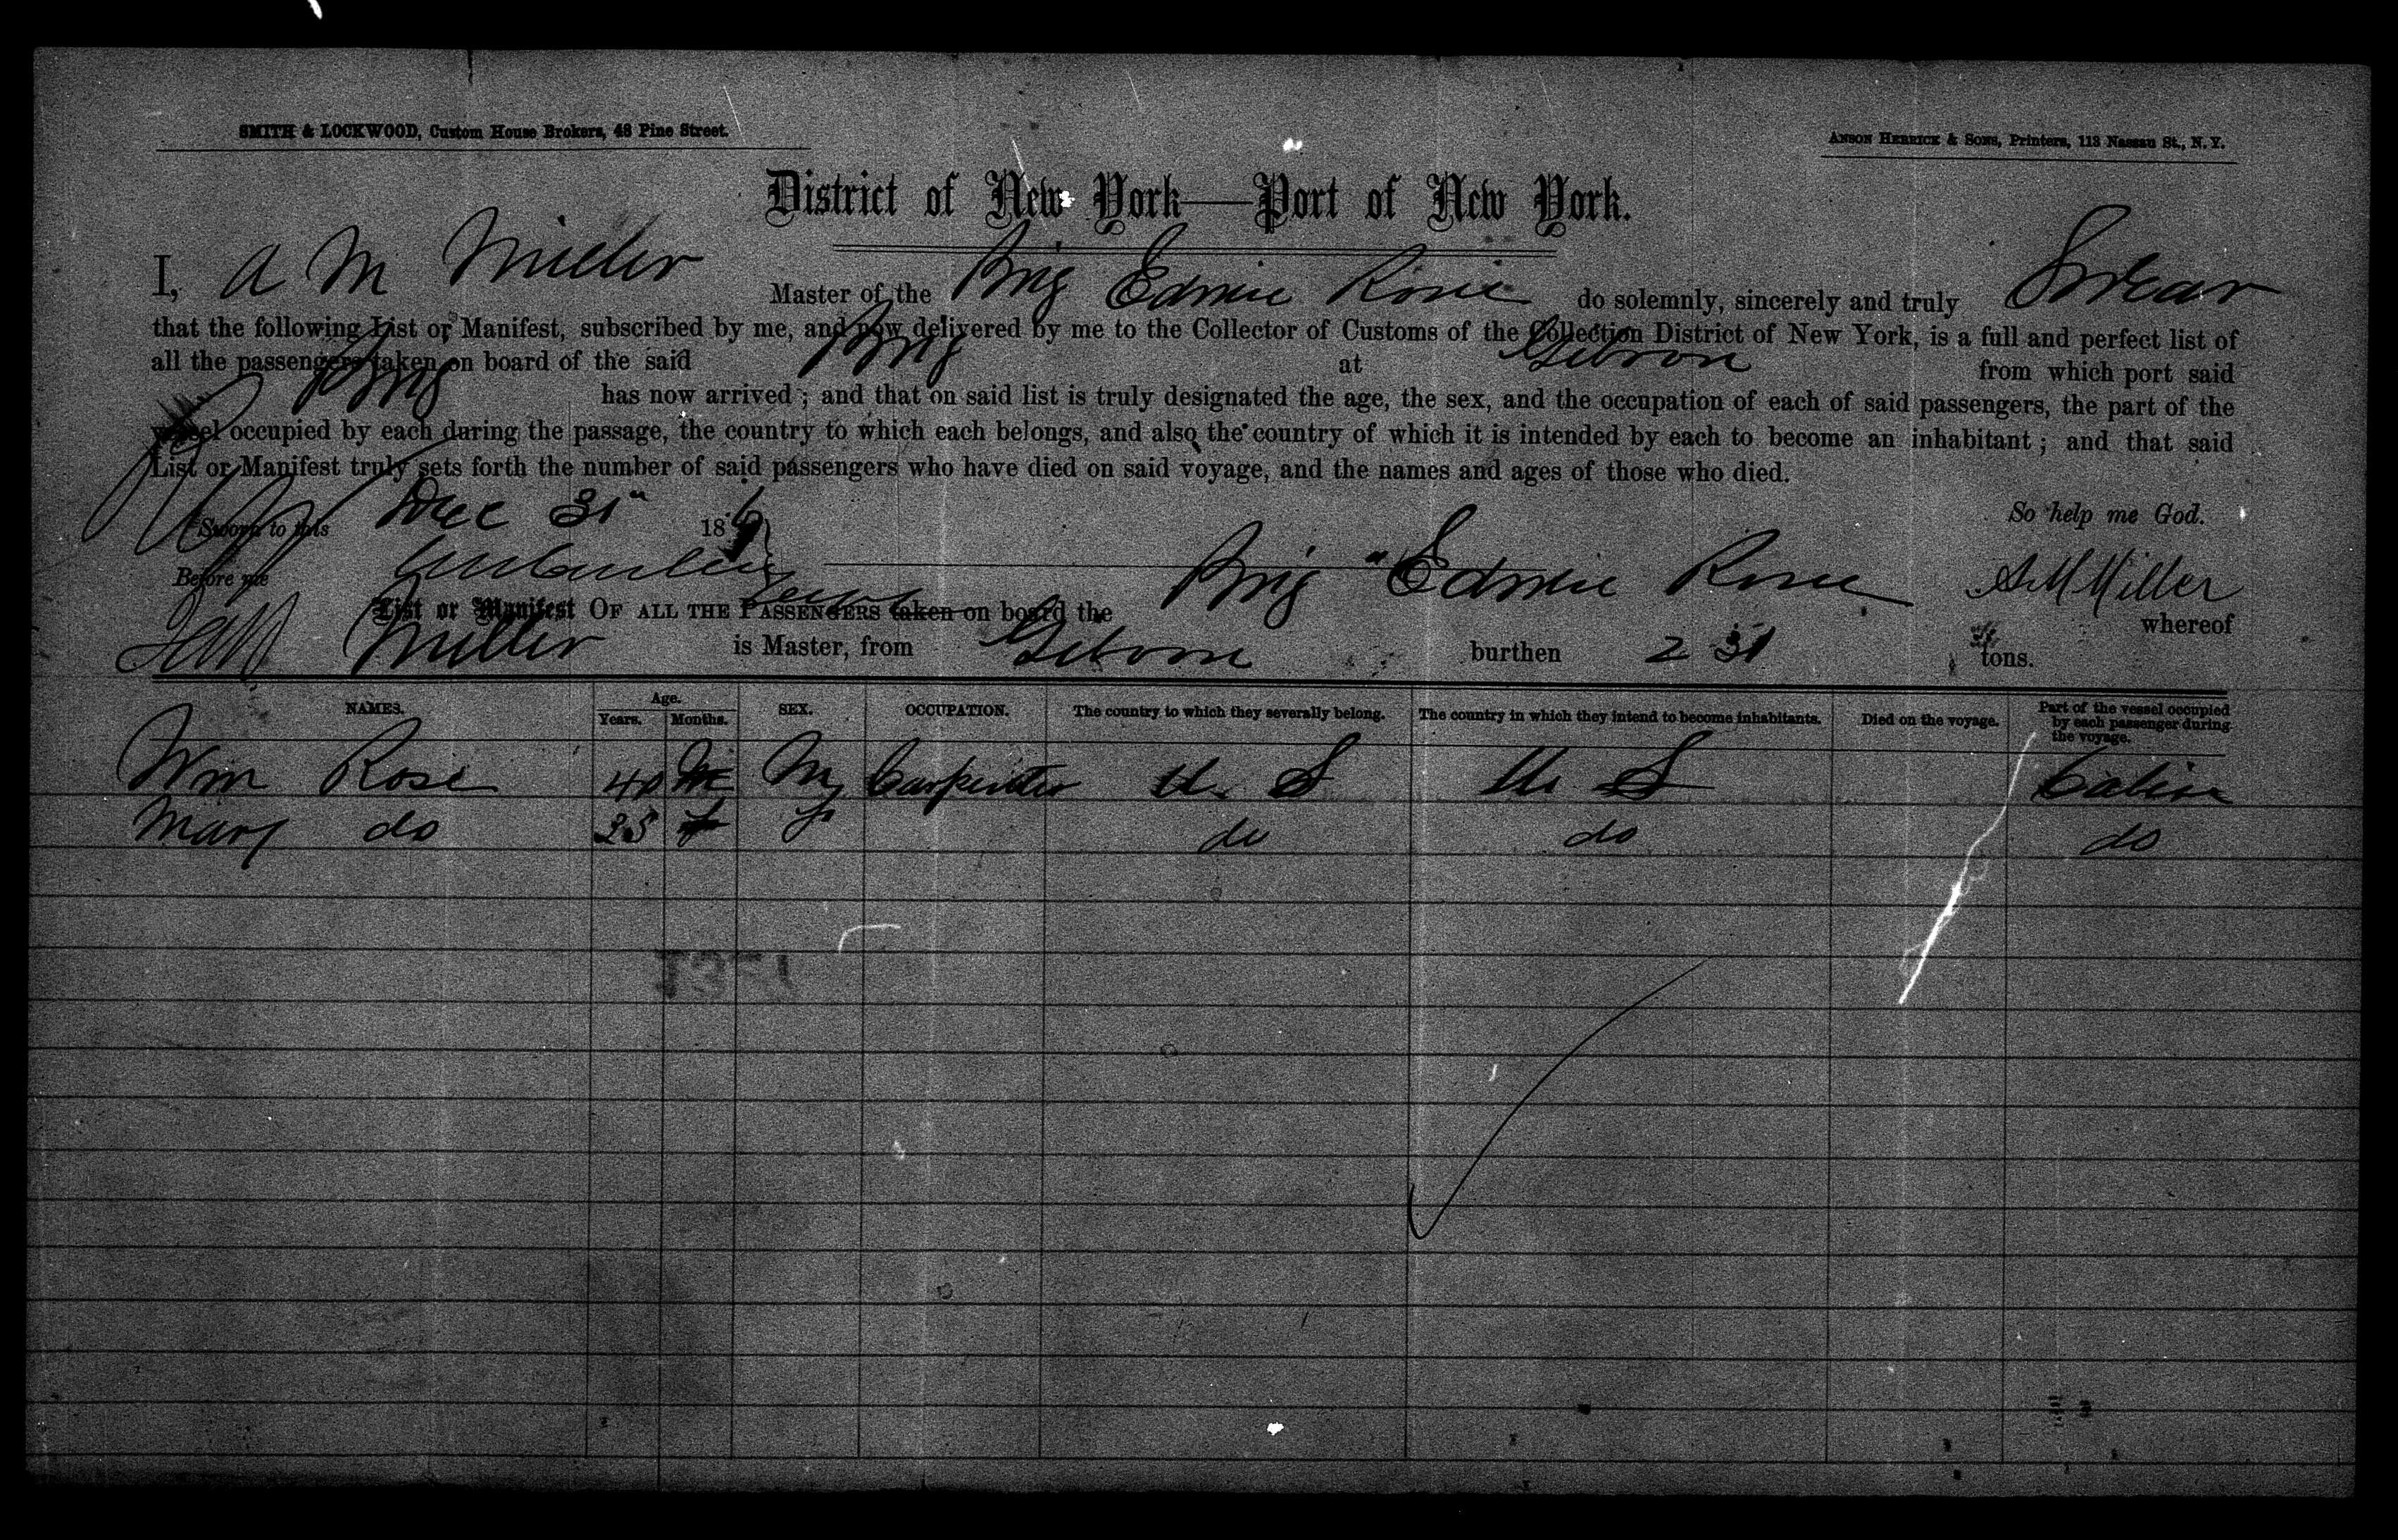 SMITH & LOCKWOOD, Custom House Brokers, 48 Pine Street.
ANSON HERRICK & SONS, Printers, 113 Nassau St., N. Y.
District of New York—Port of New York.
I, A M Miller Master of the Brig Edwin Rowe do solemnly, sincerely and truly Swear
that the following List or Manifest, subscribed by me, and now delivered by me to the Collector of Customs of the Collection District of New York, is a full and perfect list of
all the passengers taken on board of the said Brig at from which port said
Brig has now arrived; and that on said list is truly designated the age, the sex, and the occupation of each of said passengers, the part of the
vessel occupied by each during the passage, the country to which each belongs, and also the country of which it is intended by each to become an inhabitant; and that said
List or Manifest truly sets forth the number of said passengers who have died on said voyage, and the names and ages of those who died.
So help me God.
Sworn to this Dec 31" 186
Before me
A M Miller
List or Manifest OF ALL THE PASSENGERS taken on board the Brig "Edwin Rowe whereof
Miller is Master, from burthen 231 tons.
NAMES. Age. Years. Months. SEX. OCCUPATION. The country to which they severally belong. The country in which they intend to become inhabitants. Died on the voyage. Part of the vessel occupied by each passenger during the voyage.
Wm Rose 40 M M Carpenter U. S U S Cabin
Mary do 25 f f do do do